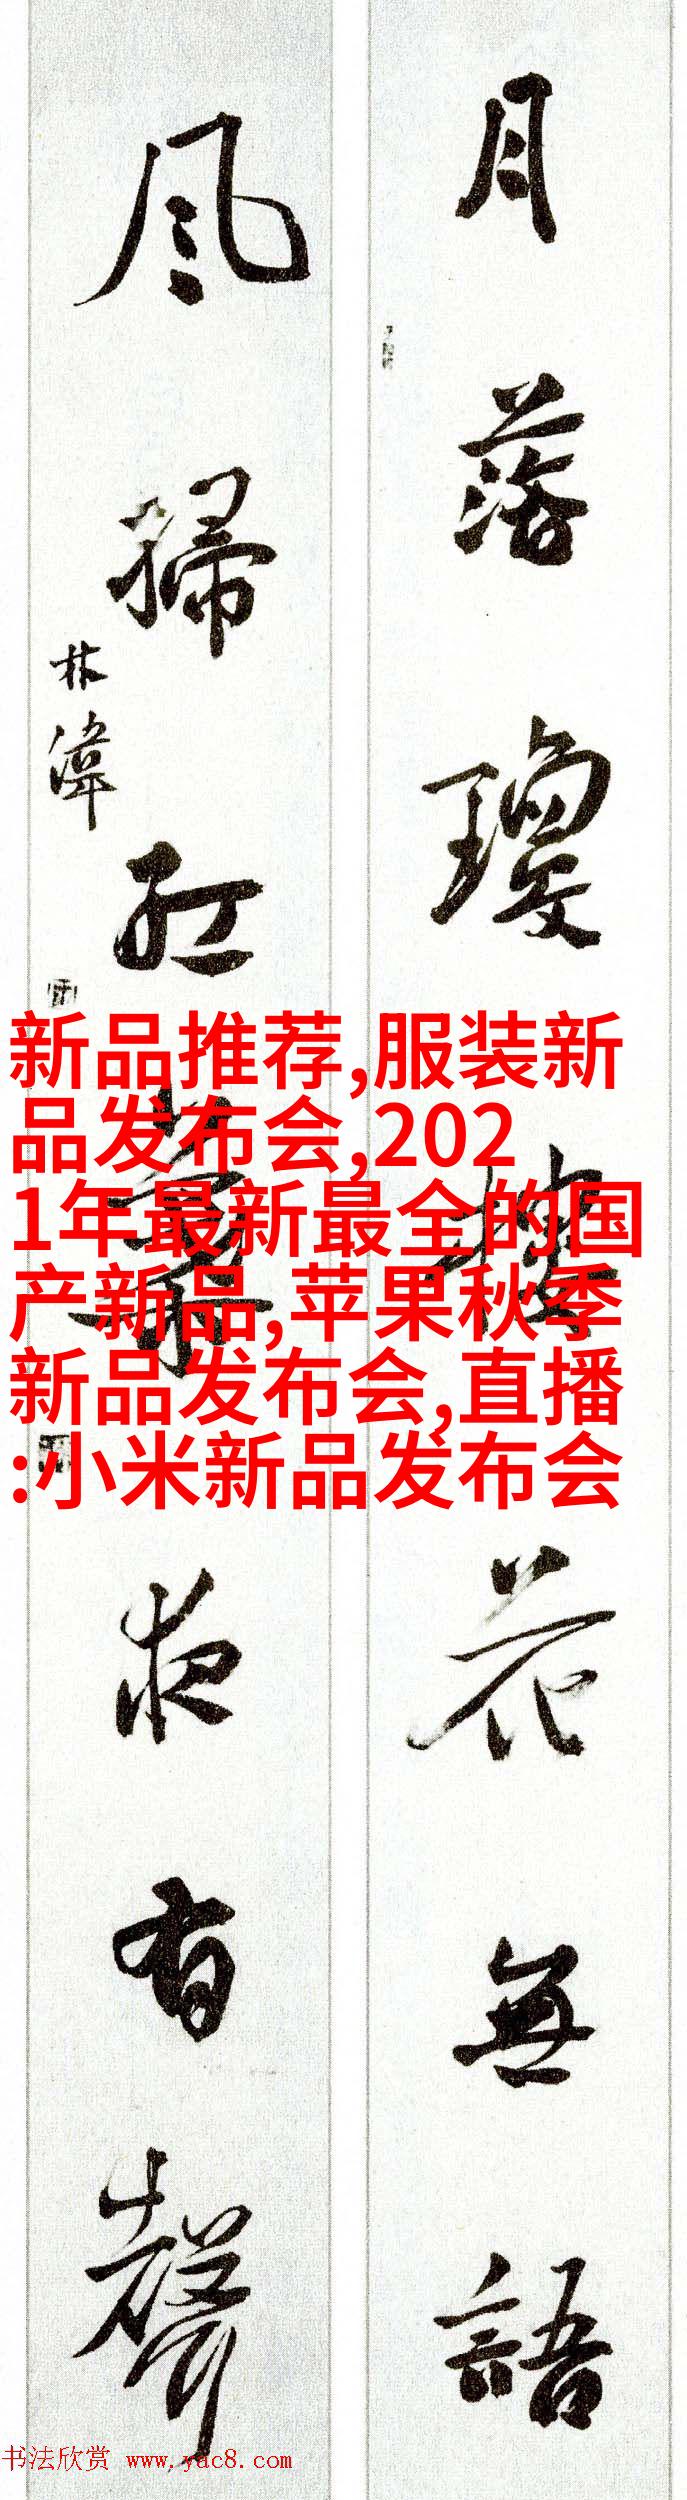 月落瓊花無語
风掃紅夜有聲
林
新品推荐,服装新
品发布会,202
1年最新最全的国
产新品,苹果秋季
新品发布会,直播
:小米新品发布会
书法欣赏 www.yac8.com